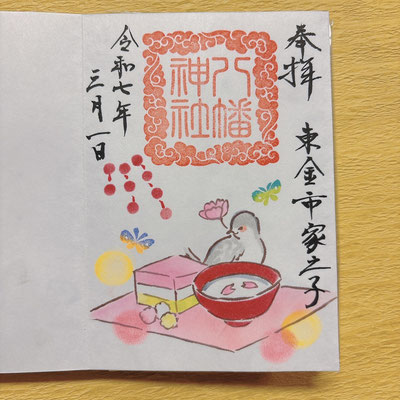 奉拝
東金市家之子
八幡
神社
令和七年
三月一日